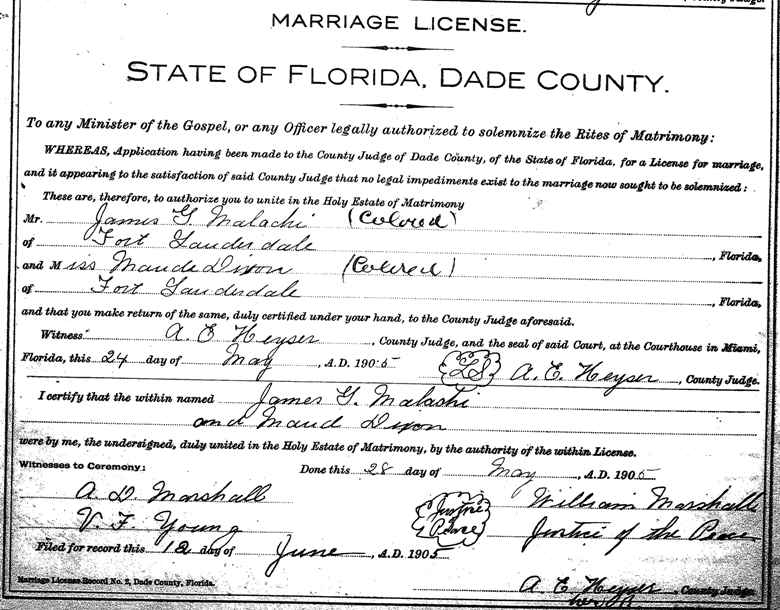 County Judge.
MARRIAGE LICENSE.
STATE OF FLORIDA, DADE COUNTY.
To any Minister of the Gospel, or any Officer legally authorized to solemnize the Rites of Matrimony:
WHEREAS, Application having been made to the County Judge of Dade County, of the State of Florida, for a License for marriage,
and it appearing to the satisfaction of said County Judge that no legal impediments exist to the marriage now sought to be solemnized:
These are, therefore, to authorize you to unite in the Holy Estate of Matrimony
Mr. James G Malachi (Colored)
of Fort Lauderdale, Florida,
and Miss Maude Dixon (Colored)
of Fort Lauderdale, Florida,
and that you make return of the same, duly certified under your hand, to the County Judge aforesaid.
Witness A. E Heyser, County Judge, and the seal of said Court, at the Courthouse in Miami,
Florida, this 24 day of May, A.D. 1905 LS A. E. Heyser, County Judge.
I certify that the within named James G. Malachi
and Maud Dixon
were by me, the undersigned, duly united in the Holy Estate of Matrimony, by the authority of the within License.
Witnesses to Ceremony: Done this 28 day of May, A.D. 1905
A D Marshall William Marshall
V F Young Justice Peace Justice of the Peace
Filed for record this 12 day of June, A.D. 1905
A E Heyser County Judge
Marriage License Record No. 2, Dade County, Florida.